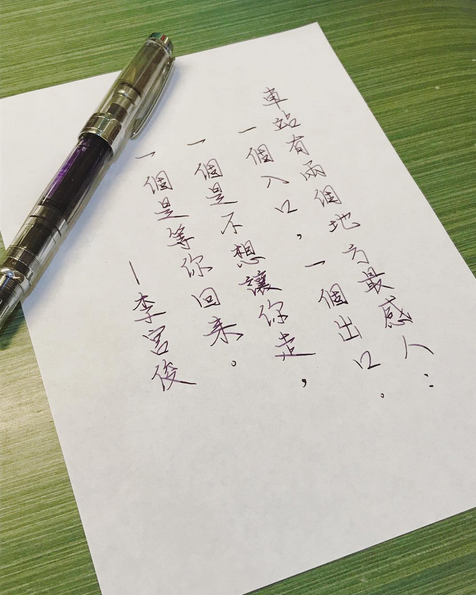 車站有兩個地方最感人：
一個入口，一個出口。
一個是不想讓你走，
一個是等你回来。
—李宮俊